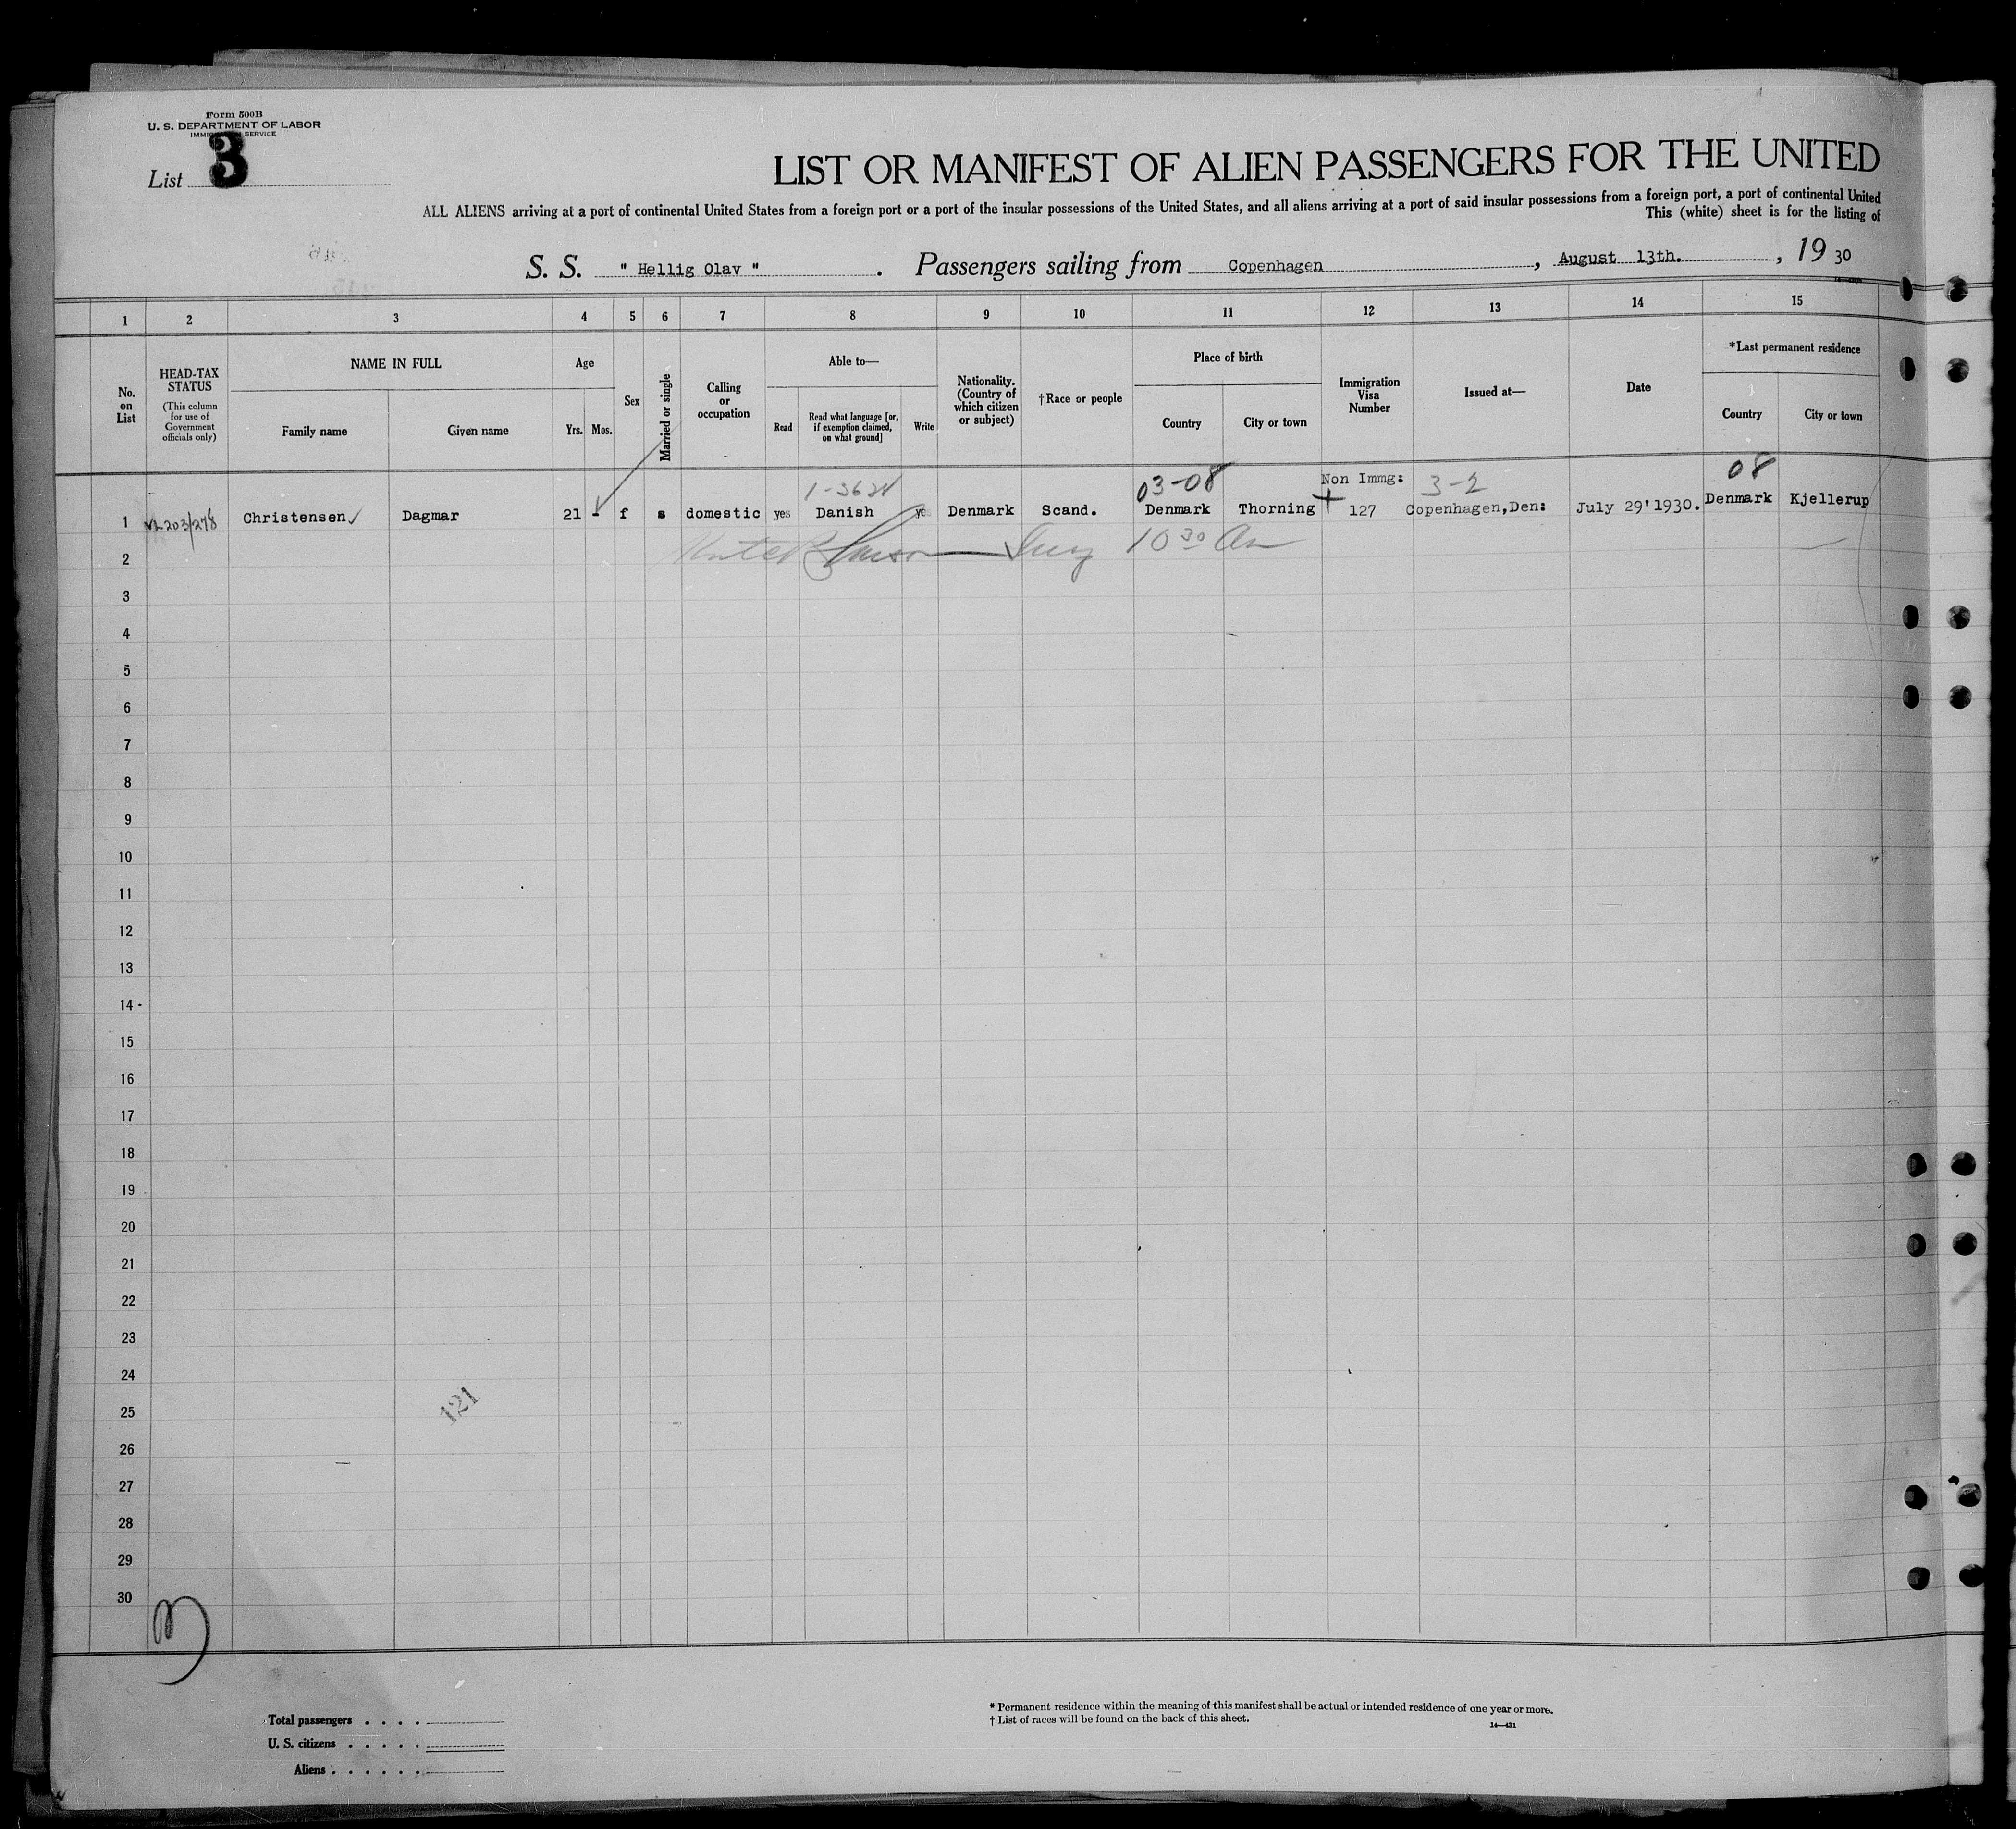 Form 500B
U. S. DEPARTMENT OF LABOR
IMMIGRATION SERVICE
List 3
LIST OR MANIFEST OF ALIEN PASSENGERS FOR THE UNITED
ALL ALIENS arriving at a port of continental United States from a foreign port or a port of the insular possessions of the United States, and all aliens arriving at a port of said insular possessions from a foreign port, a port of continental United
This (white) sheet is for the listing of
S. S. " Hellig Olav " . Passengers sailing from Copenhagen , August 13th. , 19 30
1 2 3 4 5 6 7 8 9 10 11 12 13 14 15
No. on List
HEAD-TAX STATUS
(This column for use of Government officials only)
NAME IN FULL
Family name
Given name
Age
Yrs. Mos.
Sex
Married or single
Calling or occupation
Able to—
Read
Read what language [or, if exemption claimed, on what ground]
Write
Nationality. (Country of which citizen or subject)
†Race or people
Place of birth
Country
City or town
Immigration Visa Number
Issued at—
Date
*Last permanent residence
Country
City or town
03-08 Non Immg: 3-2 08
1 Christensen Dagmar 21 - f s domestic yes Danish Denmark Scand. Denmark Thorning 127 Copenhagen,Den: July 29'1930. Denmark Kjellerup
10 30 Am
2
3
4
5
6
7
8
9
10
11
12
13
14
15
16
17
18
19
20
21
22
23
24
25
26
27
28
29
30
121
Total passengers . . . .
U. S. citizens . . . . .
Aliens . . . . . .
* Permanent residence within the meaning of this manifest shall be actual or intended residence of one year or more.
† List of races will be found on the back of this sheet.
14—431